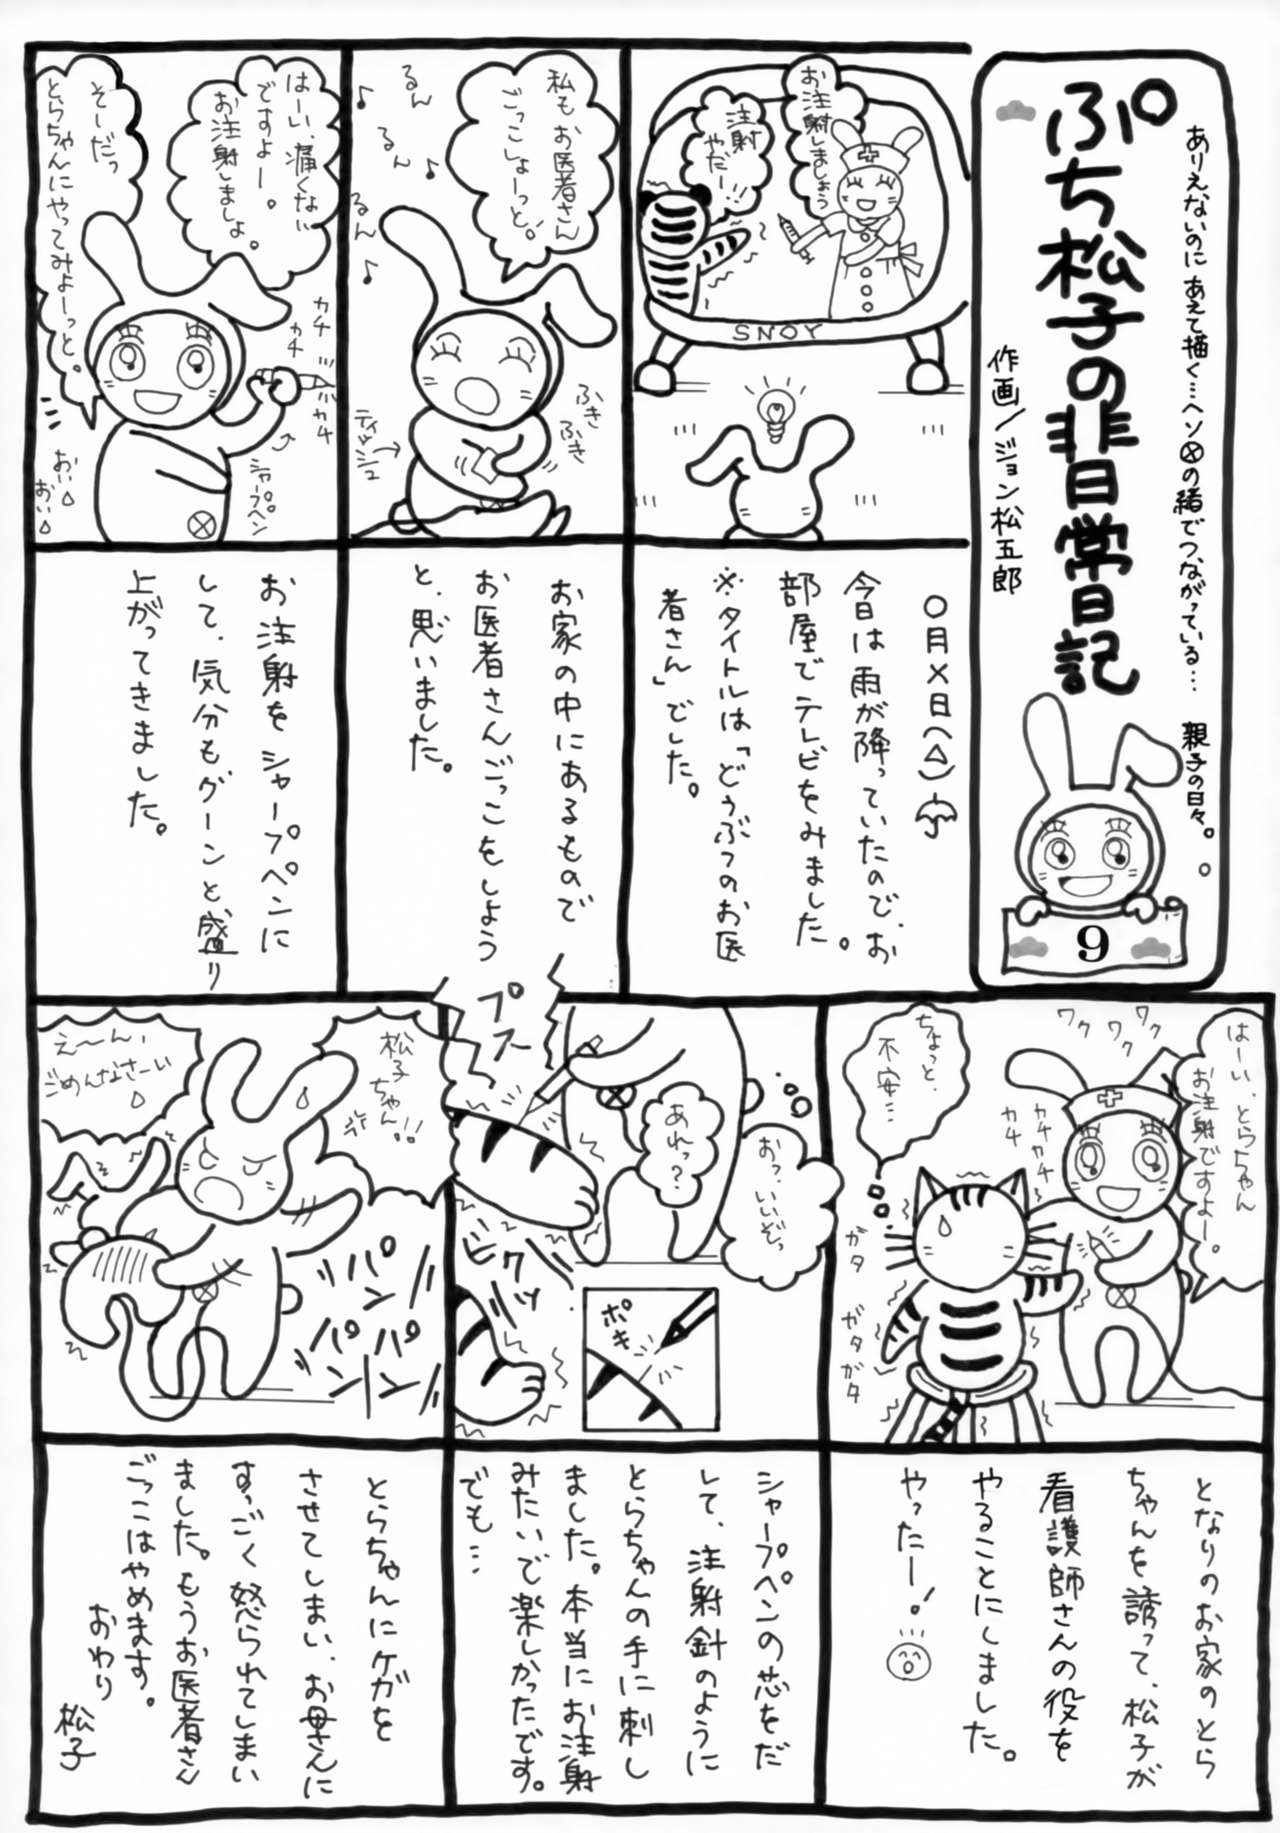 ありえないのに あえて描く…ヘソ⊗の緒でつながっている…
親子の日々。
ぷち松子の非日常日記
作画/ジョン松五郎
9
お注射しましょう
注射
やだー!!
SNOY
〇月×日(△)
今日は雨が降っていたので、お
部屋でテレビをみました。
※タイトルは「どうぶつのお医
者さん」でした。
私もお医者さん
ごっこしよーっと。
るん
るん
るん
♪
♪
♪
ふき
ふき
ティッシュ→
お家の中にあるもので
お医者さんごっこをしよう
と、思いました。
はーい、痛くない
ですよー。
お注射しましょ。
そーだっ
とらちゃんにやってみよーっと。
カチ
カチ
カチ
シャープペン
おい
おい
お注射をシャープペンに
して、気分もグーンと盛り
上がってきました。
はーい、とらちゃん
お注射ですよー。
ワク
ワク
ワク
カチ
カチカチ
カチ
ちょっと、
不安…
ガタ
ガタ
ガタガタ
となりのお家のとら
ちゃんを誘って、松子が
看護師さんの役を
やることにしました。
やったー!
プスー
あれっ?
おっ?いいぞっ
ビクッッ
ポキ
シャープペンの芯をだ
して、注射針のように
とらちゃんの手に刺し
ました。本当にお注射
みたいで楽しかったです。
でも…
松子
ちゃん!!
え〜ん、
ごめんなさーい
パンパン
パンパン
とらちゃんにケガを
させてしまい、お母さんに
すっごく怒られてしまい
ました。もうお医者さん
ごっこはやめます。
おわり
松子